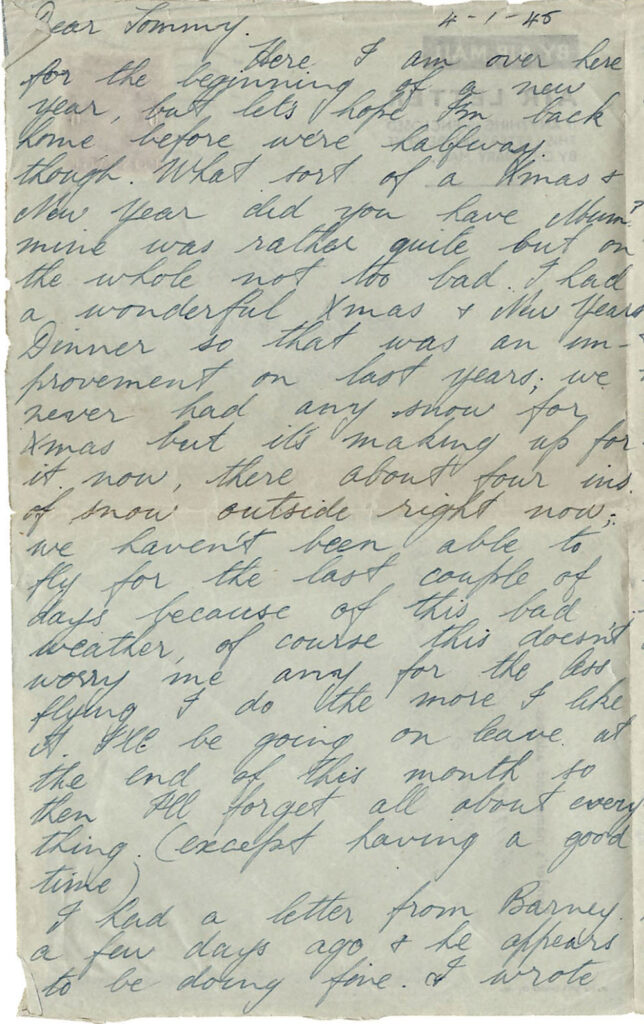 Dear Tommy. 4-1-45
Here I am over here
for the beginning of a new
year, but lets hope I'm back
home before were halfway
though. What sort of a Xmas &
New Year did you have Mum?
mine was rather quite but on
the whole not too bad. I had
a wonderful Xmas & New Years
Dinner so that was an im-
provement on last years; we
never had any snow for
Xmas but it's making up for
it now, there about four ins.
of snow outside right now;
we haven't been able to
fly for the last couple of
days because of this bad
weather, of course this doesn't
worry me any for the less
flying I do the more I like
it. I'll be going on leave at
the end of this month so
then I'll forget all about every
thing. (except having a good
time)
I had a letter from Barney
a few days ago & he appears
to be doing fine. I wrote
BY AIR MAIL
AIR LETTER